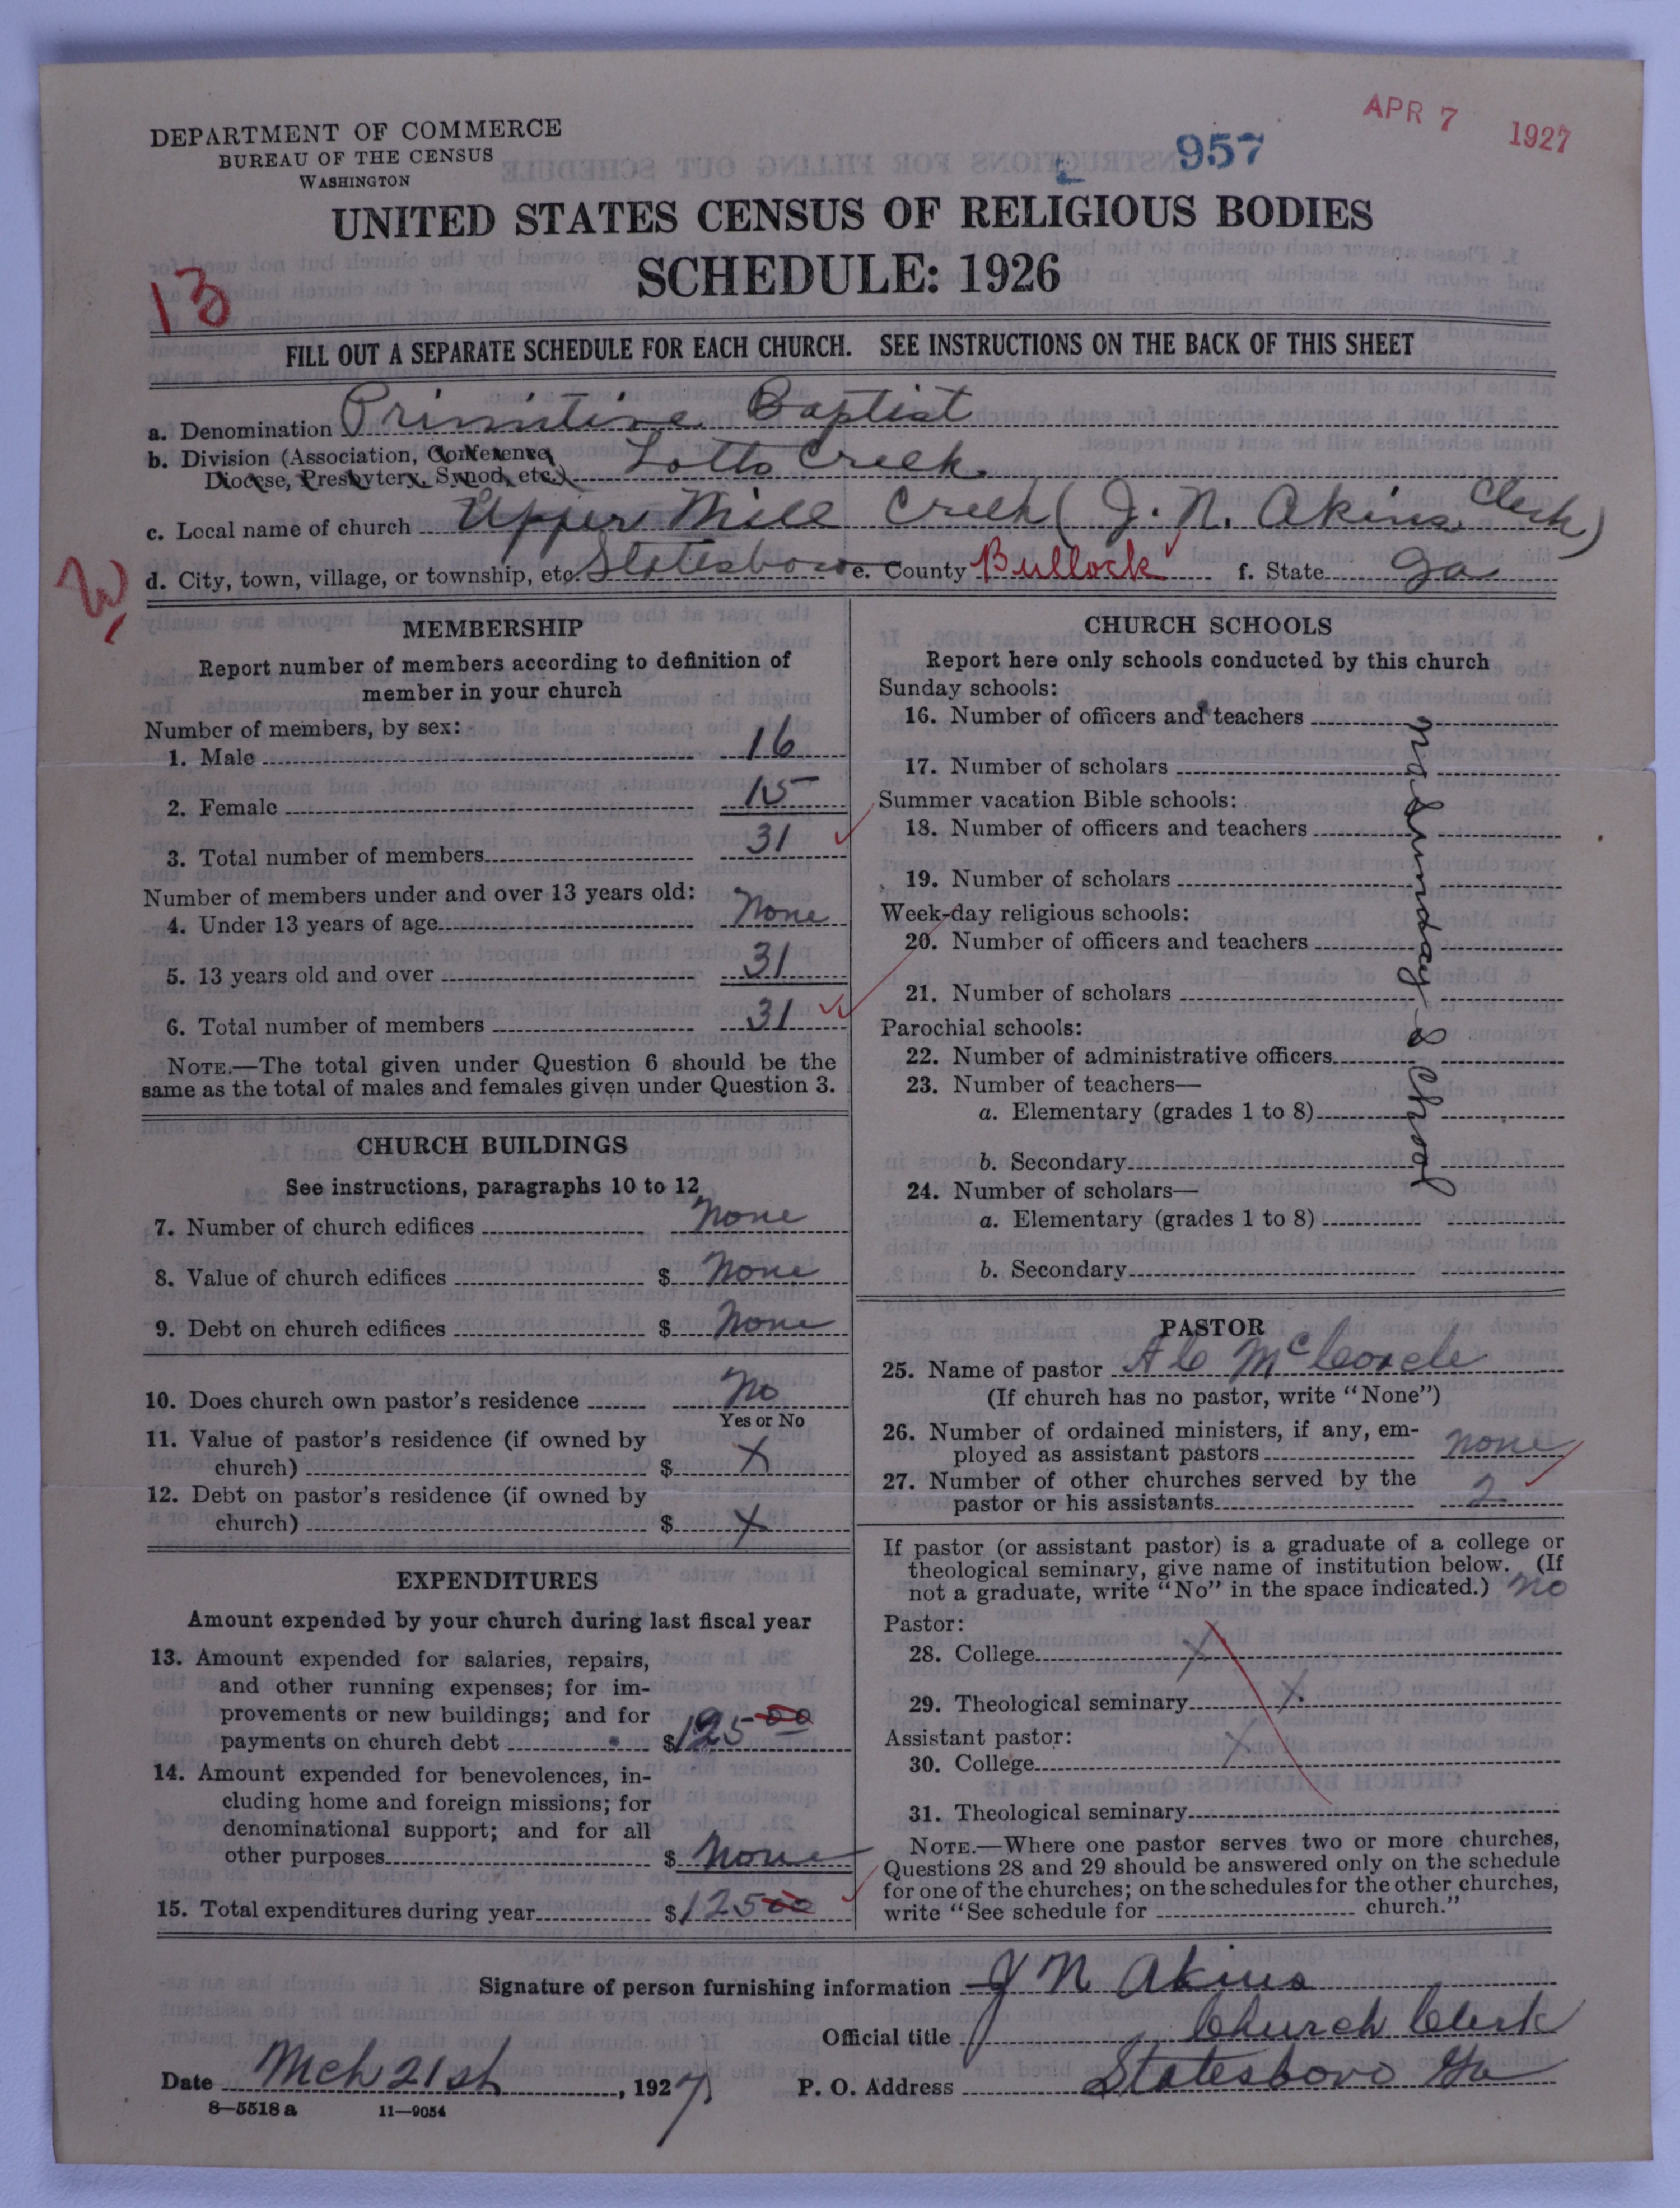 APR 7 1927
957
DEPARTMENT OF COMMERCE
BUREAU OF THE CENSUS
WASHINGTON
UNITED STATES CENSUS OF RELIGIOUS BODIES
SCHEDULE: 1926
13
FILL OUT A SEPARATE SCHEDULE FOR EACH CHURCH. SEE INSTRUCTIONS ON THE BACK OF THIS SHEET
a. Denomination Primitive Baptist
b. Division (Association, Conference, Lotts Creek.
Diocese, Presbytery, Synod, etc.)
c. Local name of church Upper Mill Creek (J. N. Akins Clerk)
d. City, town, village, or township, etc. Statesboro e. County Bullock f. State Ga
MEMBERSHIP
Report number of members according to definition of
member in your church
Number of members, by sex:
1. Male 16
2. Female 15
3. Total number of members 31
Number of members under and over 13 years old:
4. Under 13 years of age None
5. 13 years old and over 31
6. Total number of members 31
NOTE.—The total given under Question 6 should be the
same as the total of males and females given under Question 3.
CHURCH BUILDINGS
See instructions, paragraphs 10 to 12
7. Number of church edifices None
8. Value of church edifices $ None
9. Debt on church edifices $ None
10. Does church own pastor's residence No
Yes or No
11. Value of pastor's residence (if owned by
church) $ X
12. Debt on pastor's residence (if owned by
church) $ X
EXPENDITURES
Amount expended by your church during last fiscal year
13. Amount expended for salaries, repairs,
and other running expenses; for im-
provements or new buildings; and for
payments on church debt $125 00
14. Amount expended for benevolences, in-
cluding home and foreign missions; for
denominational support; and for all
other purposes $ None
15. Total expenditures during year $125 00
CHURCH SCHOOLS
Report here only schools conducted by this church
Sunday schools:
16. Number of officers and teachers
17. Number of scholars
Summer vacation Bible schools:
18. Number of officers and teachers
19. Number of scholars
Week-day religious schools:
20. Number of officers and teachers
21. Number of scholars
Parochial schools:
22. Number of administrative officers
23. Number of teachers—
a. Elementary (grades 1 to 8)
b. Secondary
24. Number of scholars—
a. Elementary (grades 1 to 8)
b. Secondary
no Sunday School
PASTOR
25. Name of pastor A C McCorcle
(If church has no pastor, write "None")
26. Number of ordained ministers, if any, em-
ployed as assistant pastors none
27. Number of other churches served by the
pastor or his assistants 2
If pastor (or assistant pastor) is a graduate of a college or
theological seminary, give name of institution below. (If
not a graduate, write "No" in the space indicated.) no
Pastor:
28. College X
29. Theological seminary X
Assistant pastor:
30. College X
31. Theological seminary
NOTE.—Where one pastor serves two or more churches,
Questions 28 and 29 should be answered only on the schedule
for one of the churches; on the schedules for the other churches,
write "See schedule for church."
Signature of person furnishing information J N Akins
Official title Church Clerk
Date Mch 21st, 1927 P. O. Address Statesboro Ga
8—5518 a 11—9054